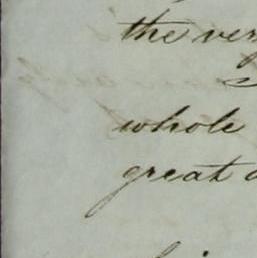 the ver
whole
great